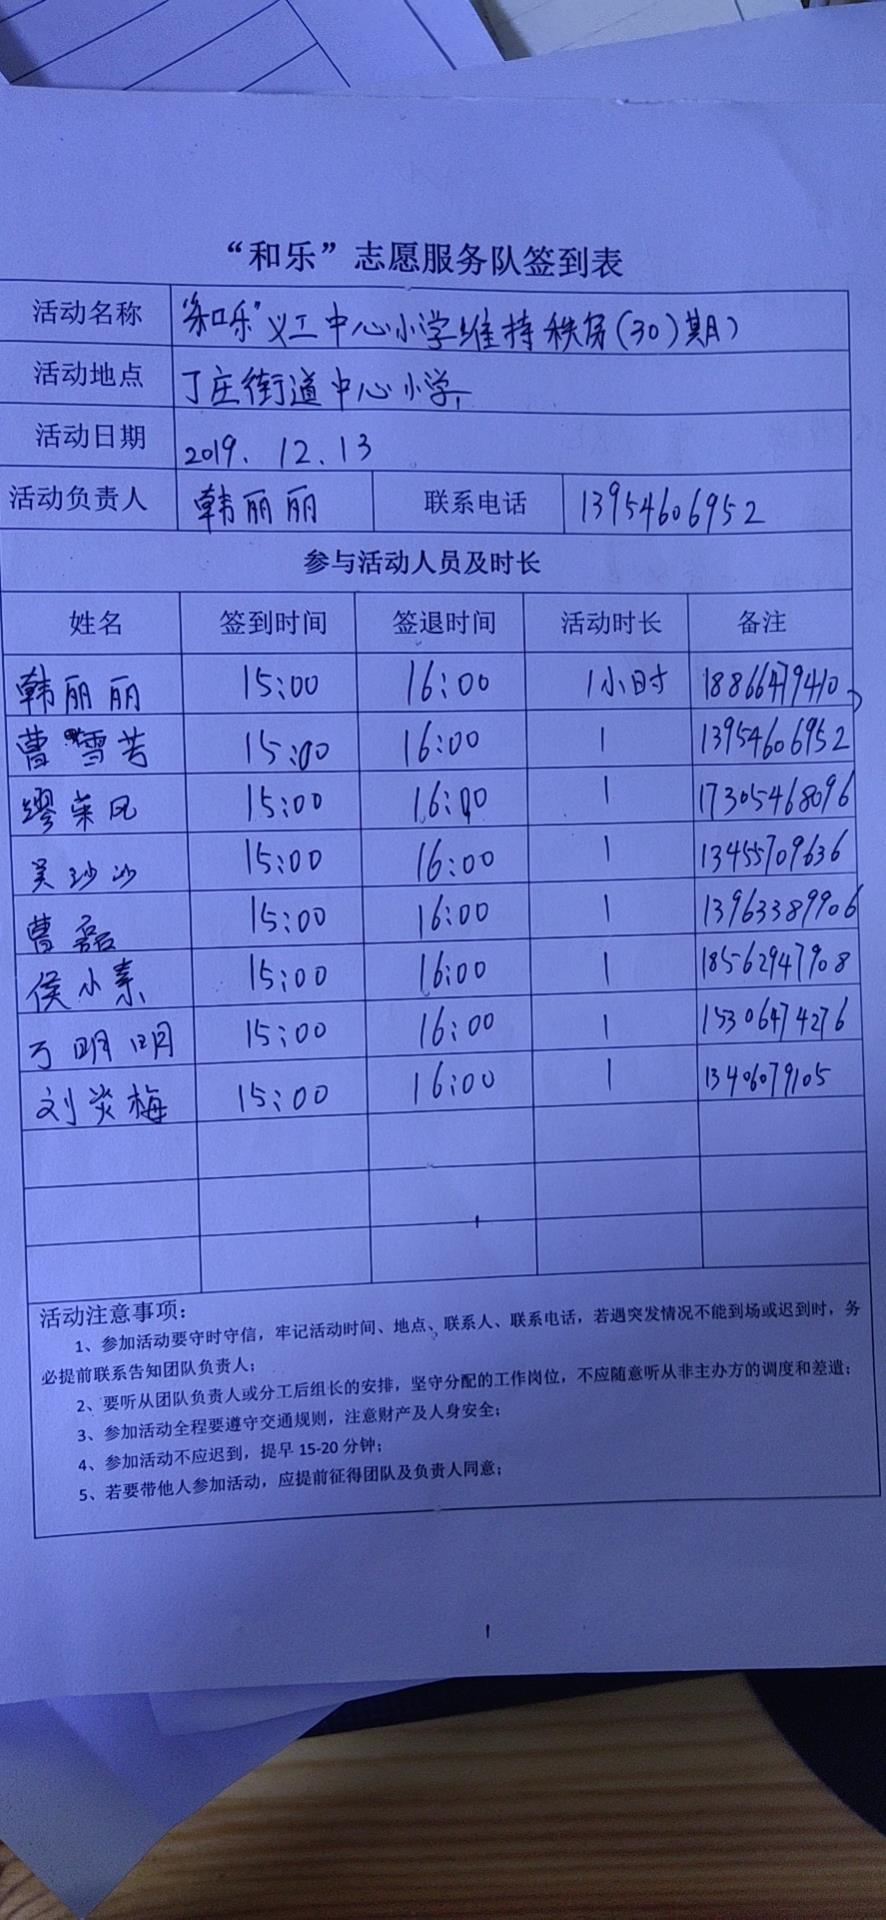 “和乐”志愿服务队签到表
活动名称 “和乐”义工中心小学维持秩序(30)期)
活动地点 丁庄街道中心小学
活动日期 2019.12.13
活动负责人 韩丽丽 联系电话 13954606952
参与活动人员及时长
姓名 签到时间 签退时间 活动时长 备注
韩丽丽 15:00 16:00 1小时 18866479410
曹雪芳 15:00 16:00 1 13954606952
缪荣风 15:00 16:00 1 17305468096
吴沙沙 15:00 16:00 1 13455709636
曹磊 15:00 16:00 1 13963389906
侯小素 15:00 16:00 1 18562947908
丁明明 15:00 16:00 1 15306474276
刘炎梅 15:00 16:00 1 13406079105
活动注意事项:
1、参加活动要守时守信，牢记活动时间、地点、联系人、联系电话，若遇突发情况不能到场或迟到时，务
必提前联系告知团队负责人；
2、要听从团队负责人或分工后组长的安排，坚守分配的工作岗位，不应随意听从非主办方的调度和差遣；
3、参加活动全程要遵守交通规则，注意财产及人身安全；
4、参加活动不应迟到，提早 15-20 分钟；
5、若要带他人参加活动，应提前征得团队及负责人同意；